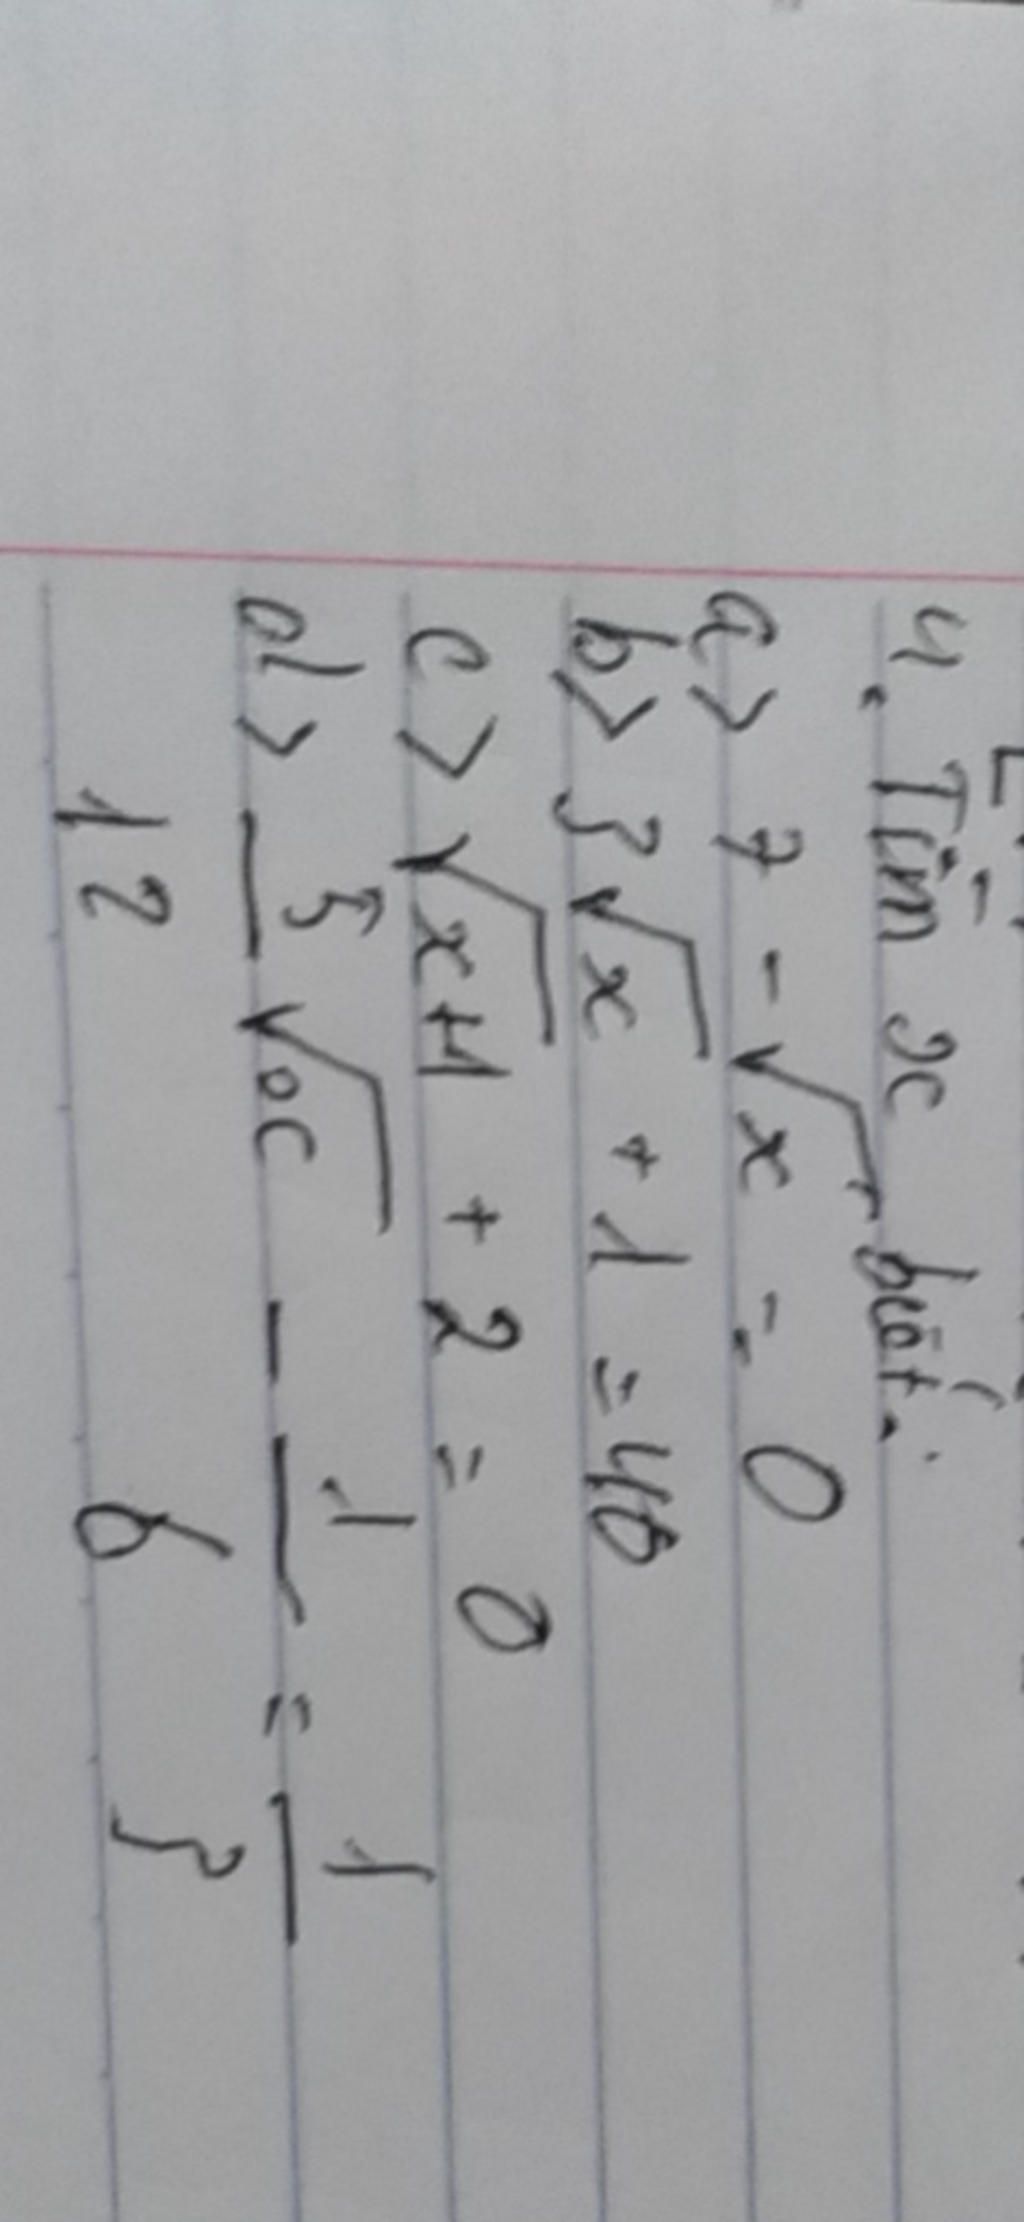 4. Tìm x biết:
a> 7 - √x = 0
b> 3√x + 1 = 40
c> √x+1 + 2 = 0
d> 5/12 √x - 1/6 = 1/3